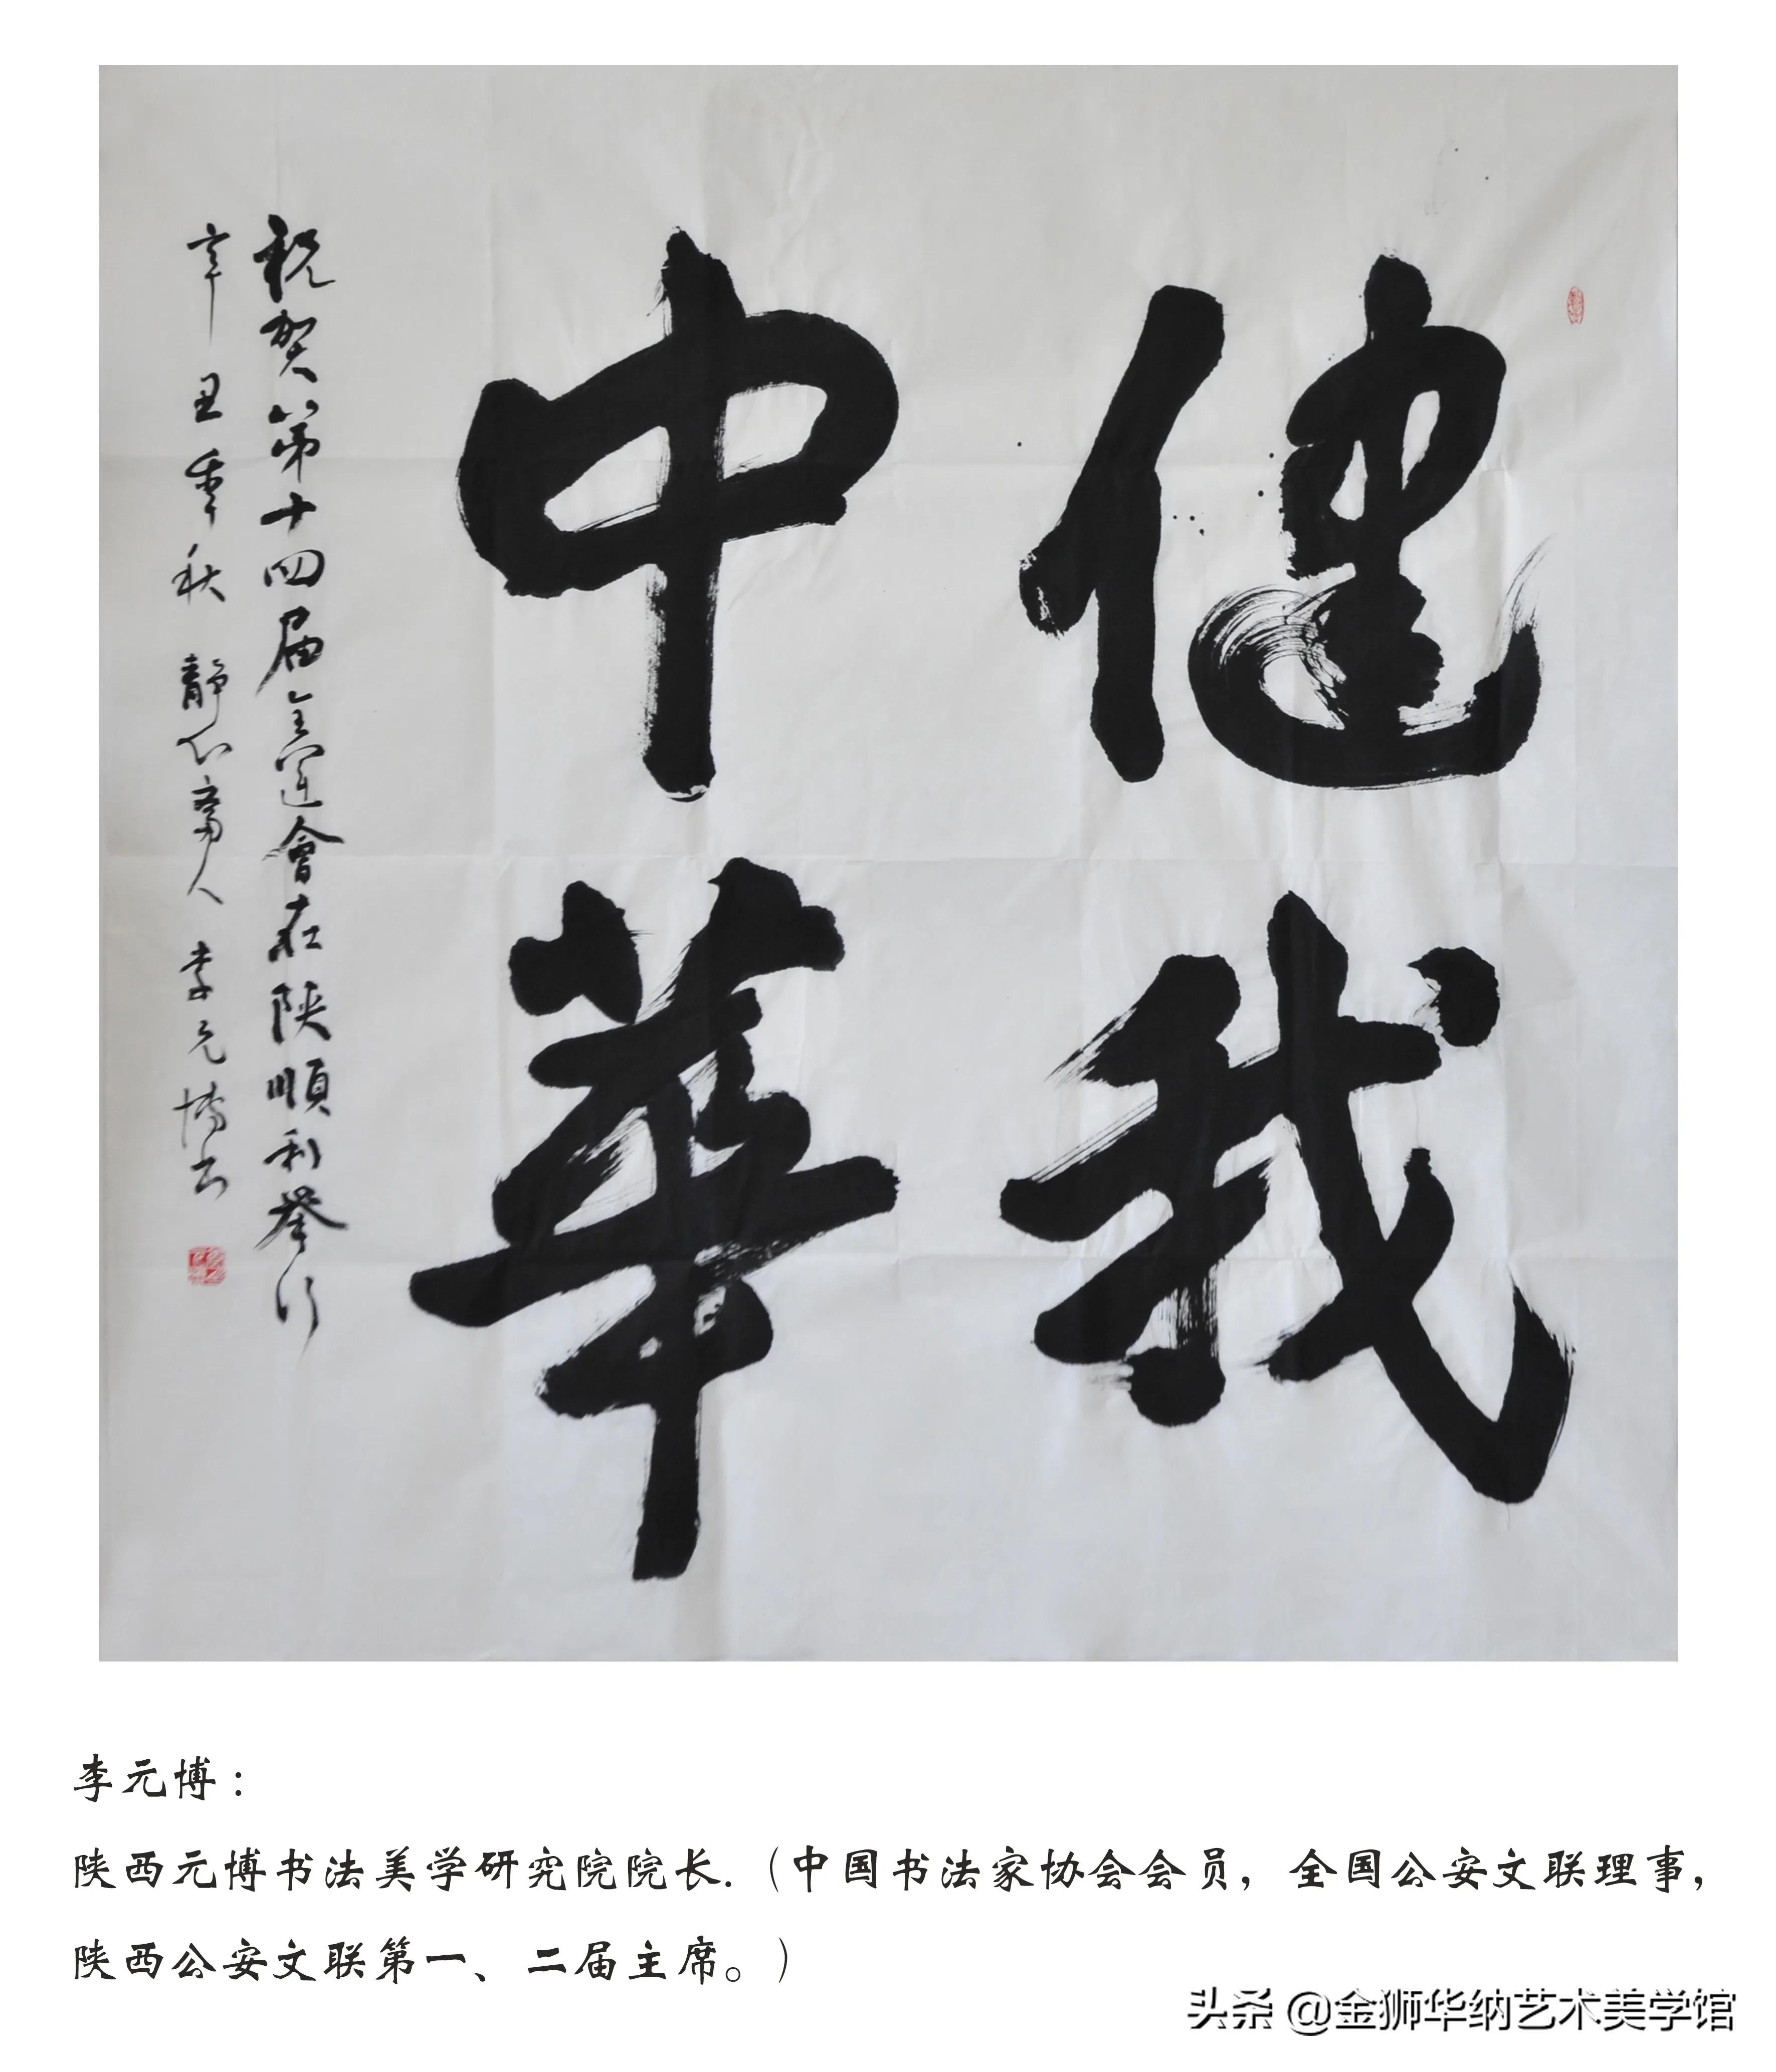 健我
中華
祝贺第十四届全运會在陕順利举行
辛丑季秋 靜心斋人 李元博书
李元博：
陕西元博书法美学研究院院长.（中国书法家协会会员，全国公安文联理事，
陕西公安文联第一、二届主席。）
头条 @金狮华纳艺术美学馆